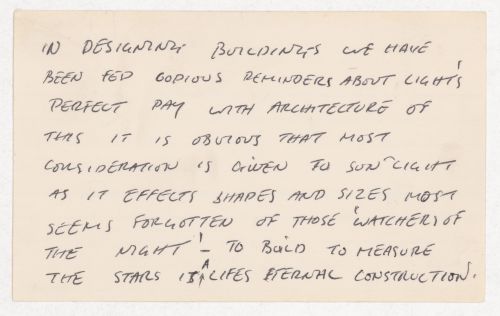 IN DESIGNING BUILDINGS WE HAVE
BEEN FED COPIOUS REMINDERS ABOUT LIGHT'S
PERFECT PAY WITH ARCHITECTURE OF
THIS IT IS OBVIOUS THAT MOST
CONSIDERATION IS GIVEN TO SUN-LIGHT
AS IT EFFECTS SHAPES AND SIZES MOST
SEEMS FORGOTTEN OF THOSE 'WATCHERS OF
THE NIGHT' - TO BUILD TO MEASURE
THE STARS IS A LIFES ETERNAL CONSTRUCTION.